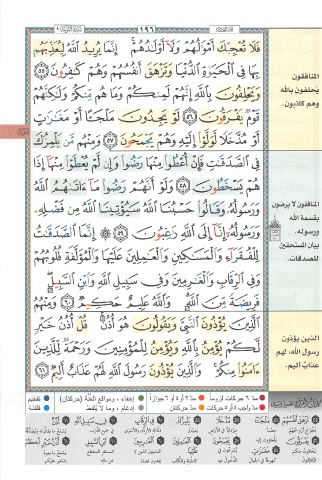 ١٩٦
فَلَا تُعْجِبْكَ أَمْوَٰلُهُمْ وَلَآ أَوْلَٰدُهُمْ ۚ إِنَّمَا يُرِيدُ ٱللَّهُ لِيُعَذِّبَهُم
بِهَا فِى ٱلْحَيَوٰةِ ٱلدُّنْيَا وَتَزْهَقَ أَنفُسُهُمْ وَهُمْ كَٰفِرُونَ ٥٥
وَيَحْلِفُونَ بِٱللَّهِ إِنَّهُمْ لَمِنكُمْ وَمَا هُم مِّنكُمْ وَلَٰكِنَّهُمْ
قَوْمٌ يَفْرَقُونَ ٥٦ لَوْ يَجِدُونَ مَلْجَـًٔا أَوْ مَغَٰرَٰتٍ
أَوْ مُدَّخَلًا لَّوَلَّوْا۟ إِلَيْهِ وَهُمْ يَجْمَحُونَ ٥٧ وَمِنْهُم مَّن يَلْمِزُكَ
فِى ٱلصَّدَقَٰتِ فَإِنْ أُعْطُوا۟ مِنْهَا رَضُوا۟ وَإِن لَّمْ يُعْطَوْا۟ مِنْهَآ إِذَا
هُمْ يَسْخَطُونَ ٥٨ وَلَوْ أَنَّهُمْ رَضُوا۟ مَآ ءَاتَىٰهُمُ ٱللَّهُ
وَرَسُولُهُۥ وَقَالُوا۟ حَسْبُنَا ٱللَّهُ سَيُؤْتِينَا ٱللَّهُ مِن فَضْلِهِۦ
وَرَسُولُهُۥٓ إِنَّآ إِلَى ٱللَّهِ رَٰغِبُونَ ٥٩ إِنَّمَا ٱلصَّدَقَٰتُ
لِلْفُقَرَآءِ وَٱلْمَسَٰكِينِ وَٱلْعَٰمِلِينَ عَلَيْهَا وَٱلْمُؤَلَّفَةِ قُلُوبُهُمْ
وَفِى ٱلرِّقَابِ وَٱلْغَٰرِمِينَ وَفِى سَبِيلِ ٱللَّهِ وَٱبْنِ ٱلسَّبِيلِ ۖ
فَرِيضَةً مِّنَ ٱللَّهِ ۗ وَٱللَّهُ عَلِيمٌ حَكِيمٌ ٦٠ وَمِنْهُمُ
ٱلَّذِينَ يُؤْذُونَ ٱلنَّبِىَّ وَيَقُولُونَ هُوَ أُذُنٌ ۚ قُلْ أُذُنُ خَيْرٍ
لَّكُمْ يُؤْمِنُ بِٱللَّهِ وَيُؤْمِنُ لِلْمُؤْمِنِينَ وَرَحْمَةٌ لِّلَّذِينَ
ءَامَنُوا۟ مِنكُمْ ۚ وَٱلَّذِينَ يُؤْذُونَ رَسُولَ ٱللَّهِ لَهُمْ عَذَابٌ أَلِيمٌ ٦١
المنافقون
يحلفون بالله
وهم كاذبون.
المنافقون لا يرضون
بقسمة الله
ورسوله.
بيان المستحقين
للصدقات.
الذين يؤذون
رسول الله، لهم
عذاب أليم.
مدّ ٦ حركات لزوماً
مدّ ٢ أو ٤ أو ٦ جوازاً
إخفاء، ومواقع الغُنَّة (حركتان)
تفخيم
مدّ واجب ٤ أو ٥ حركات
مدّ حركتان
إدغام، وما لا يُلفَظ
قلقلة